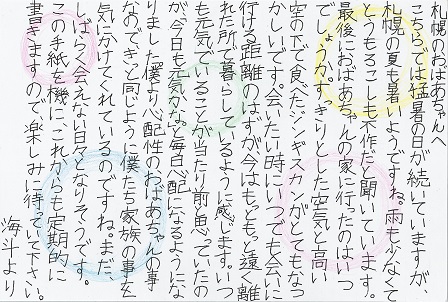 札幌のおばあちゃんへ
こちらでは猛暑の日が続いていますが、
札幌の夏も暑いようですね。雨も少なくて
とうもろこしも不作だと聞いています。
最後におばあちゃんの家に行ったのはいつ
でしょうか。すっきりとした空気と高い
空の下で食べたジンギスカンがとてもなつ
かしいです。会いたい時にいつでも会いに
行ける距離のはずが、今はもっともっと遠く離
れた所で暮らしているように感じます。いつ
も元気でいることが当たり前と思っていたの
が、今日も元気かな。と毎日心配になるようにな
りました。僕より心配性のおばあちゃんの事
なので、きっと同じように僕たち家族の事を
気にかけてくれているのですね。まだ
しばらく会えない日々となりそうです。
この手紙を機に、これからも定期的に
書きますので、楽しみに待っていて下さい。
海斗より